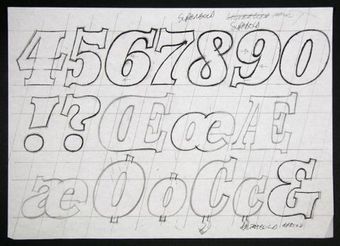 SUPERBOLD
SUPERBOLD
4567890
!?ŒœÆ
æOoCc&